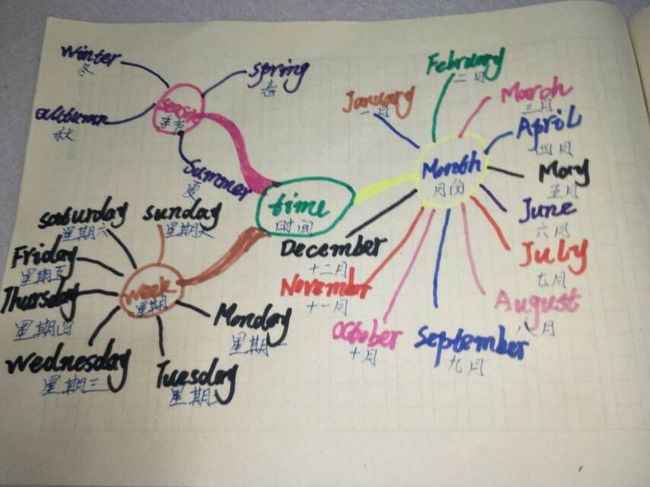 winter
冬
spring
春
autumn
秋
season
季节
summer
夏
time
时间
saturday
星期六
sunday
Friday
星期五
Thursday
星期四
Wednesday
星期三
Tuesday
星期二
Monday
星期一
week
星期
Month
月份
January
一月
February
二月
March
三月
April
四月
May
五月
June
六月
July
August
八月
September
九月
October
十月
November
十一月
December
十二月